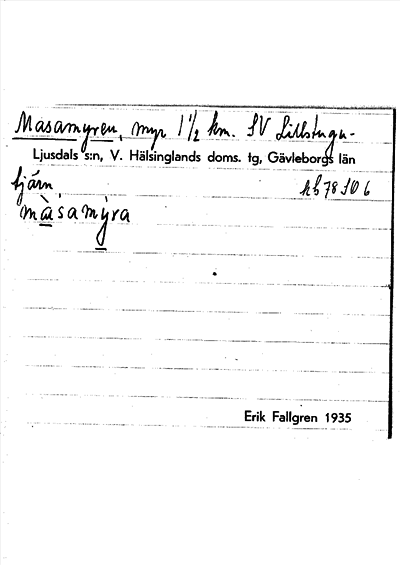 Masamyren, myr 1 1/2 km. SV Lillstugu-
Ljusdals s:n, V. Hälsinglands doms. tg, Gävleborgs län
tjärn. kb 78 SO 6
màsamỳra
Erik Fallgren 1935